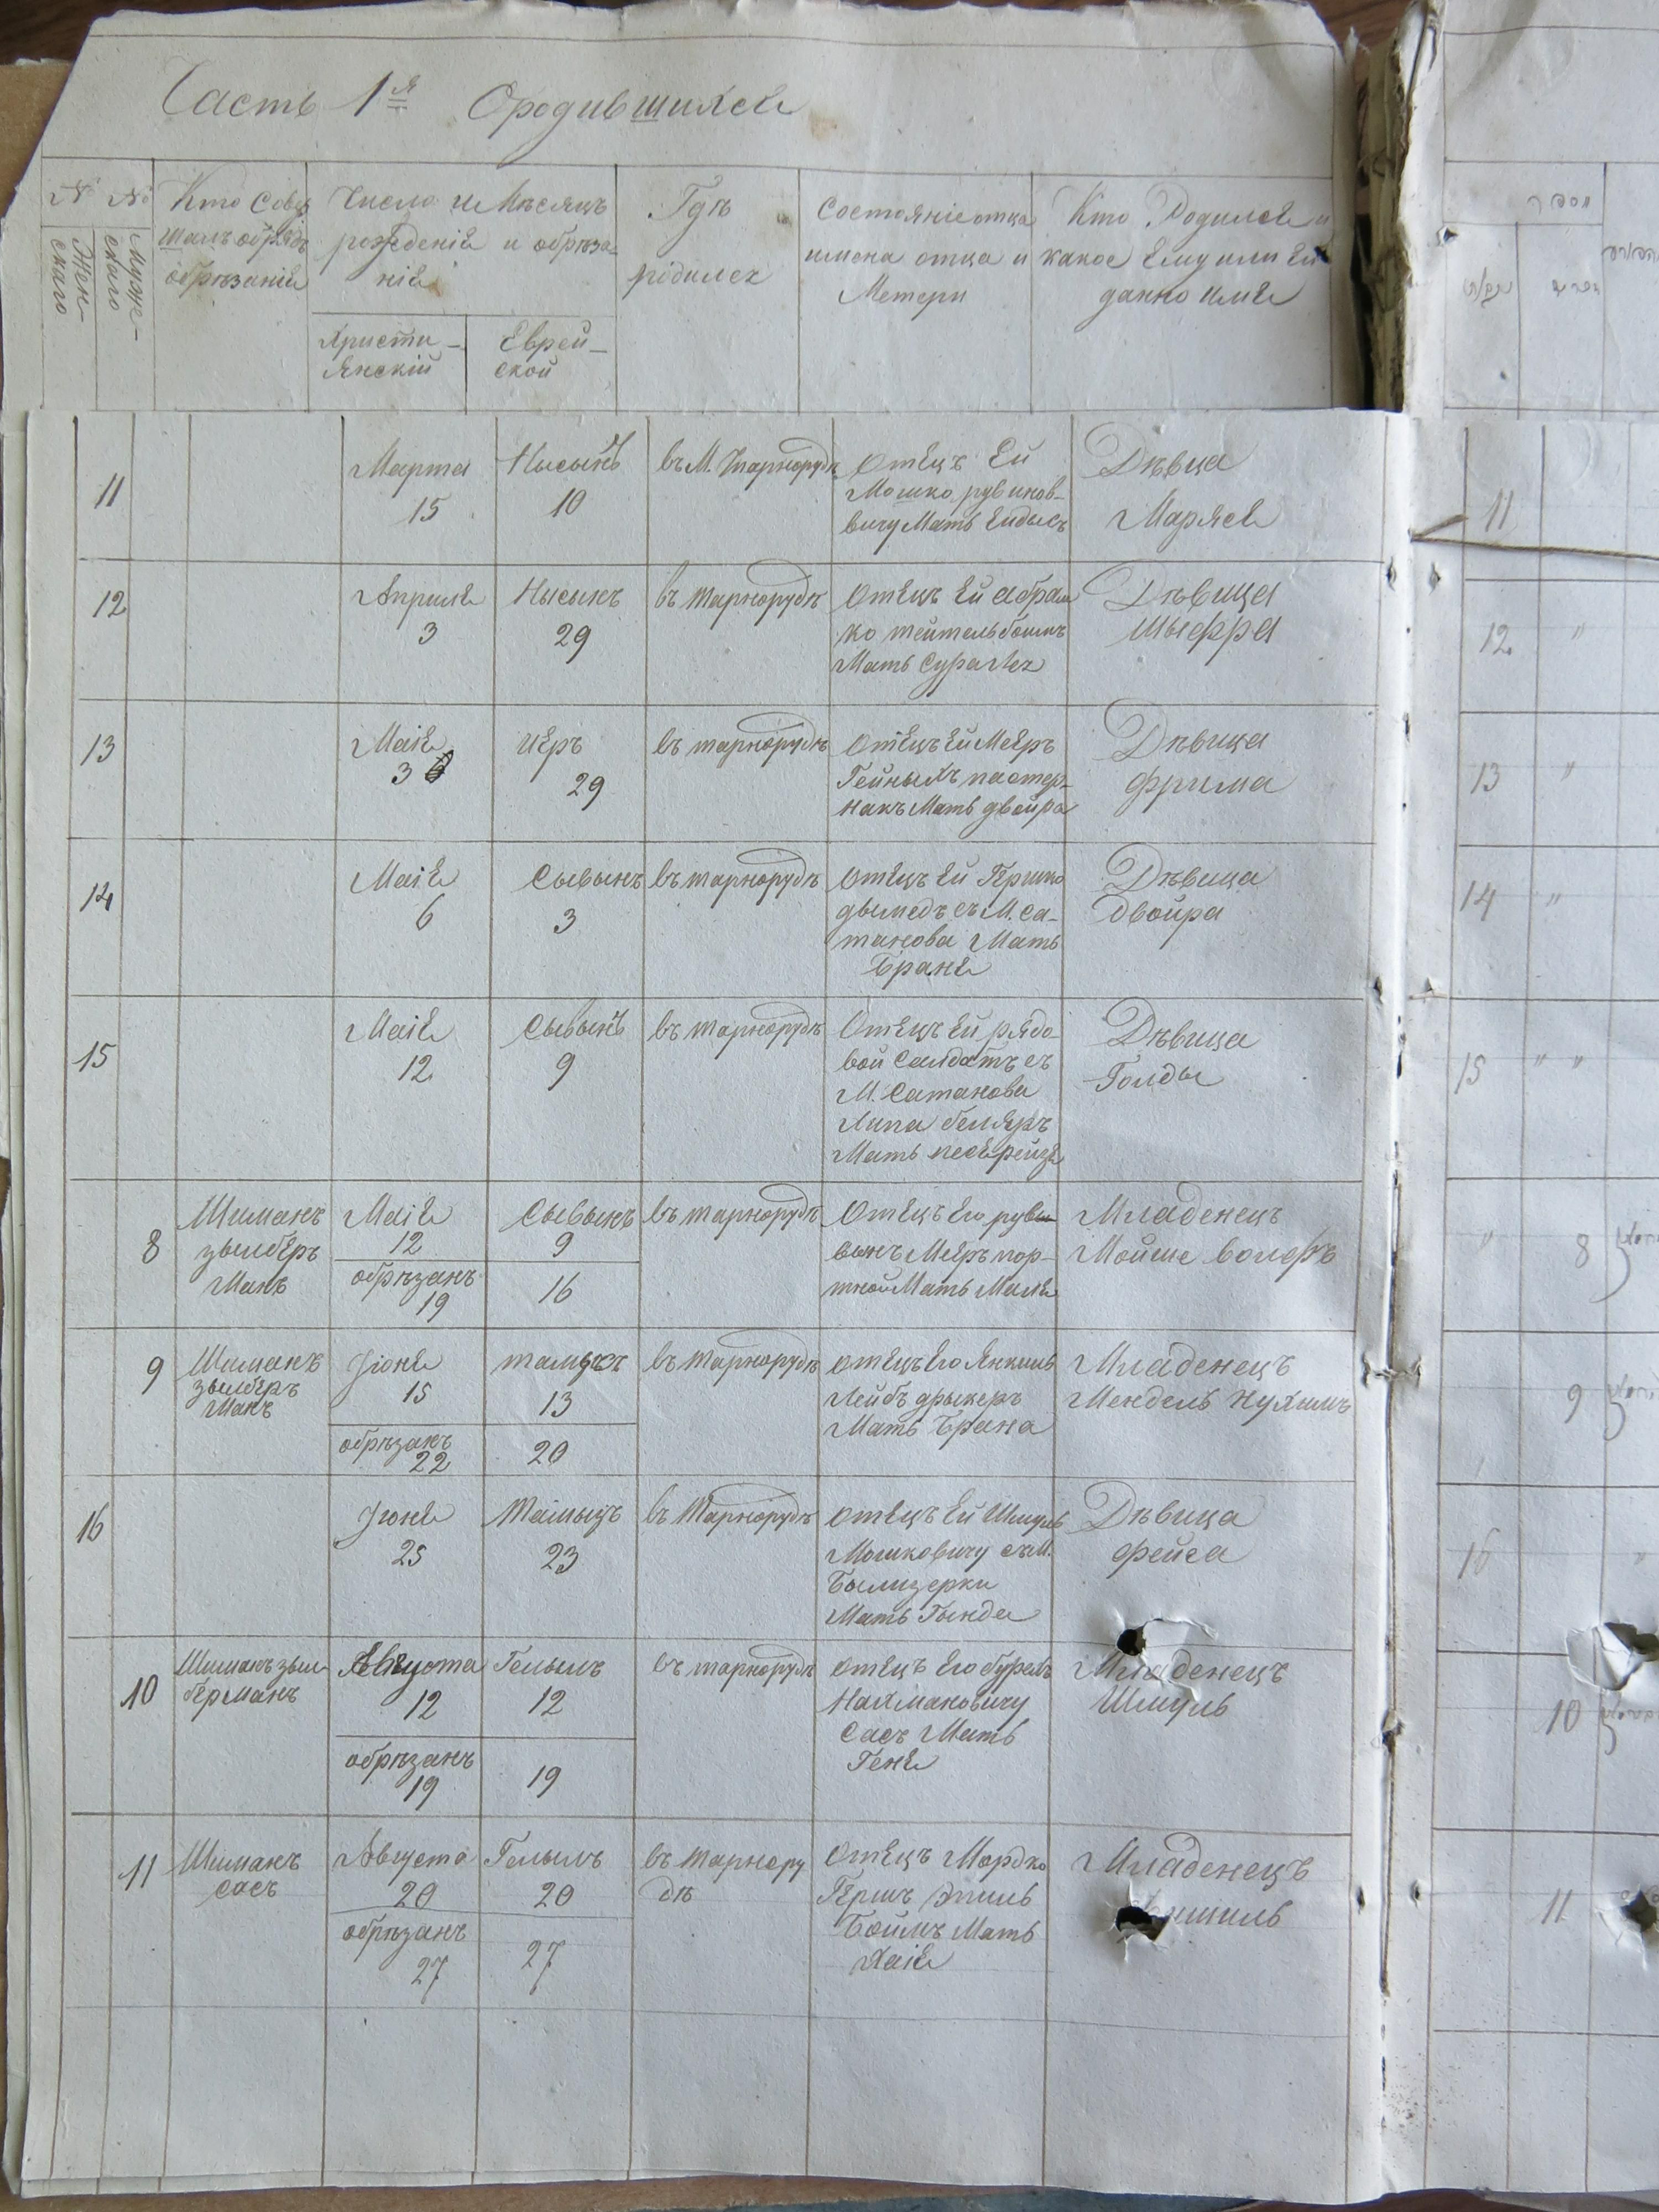 Часть 1я Ородившихся
№ №
Жен-
скаго
Муже-
скаго
Кто Совер
шалъ обрядъ
обрѣзанія
Число и Мѣсяцъ
рожденія и обрѣза-
нія
Христи-
Янскій
Еврей-
ской
Гдѣ
родился
Состояніе отца
имена отца и
Метери
Кто Родился и
какое Ему или Ей
данно имя
11
Марта
15
Нысынъ
10
въ М. Тарнорудѣ
Отецъ Ей
Мошко рувинов-
вичу Мать Ейдысъ
Дѣвца
Маряся
12
Апрыля
3
Нысынъ
29
въ тарнорудѣ
Отецъ Ей абрам
ко тейтельбоимъ
Мать Сура Лея
Дѣвица
шыфра
13
Маія
3
Иеръ
29
въ тарнорудѣ
Отецъ Ей Мееръ
Гейныхъ пастер-
накъ Мать двойра
Дѣвица
фрима
14
Маія
6
Сывынъ
3
въ тарнорудѣ
Отецъ Ей Гершко
дымедъ съ М. Са-
танова Мать
Браня
Дѣвица
Двойра
15
Маія
12
Сывынъ
9
въ тарнорудѣ
Отецъ Ей рядо-
вой Салдатъ съ
М. Сатанова
Липа беляръ
Мать песярейзя
Дѣвица
Голды
8
Шиманъ
зылберъ
Манъ
Маія
12
обрѣзанъ
19
Сывынъ
9
16
въ тарнорудѣ
Отецъ Его рувы
вынъ Мееръ пор-
тной Мать Маля
Младенецъ
Мойше волфъ
9
Шиманъ
зылберъ
Манъ
Іюня
15
обрѣзанъ
22
тамузъ
13
20
въ тарнорудѣ
отецъ Его Янкиль
Лейбъ дрыкеръ
Мать Брана
Младенецъ
Мендель Нухымъ
16
Іюня
25
Тамызъ
23
въ Тарнорудѣ
отецъ Ей Шмуль
Мошковичу съ М.
Былизерки
Мать Гында
Дѣвица
фейга
10
Шиманъ зыл
берманъ
Августа
12
обрѣзанъ
19
Гелылъ
12
19
въ тарнорудѣ
отецъ Его
Нахмановичу
Сасъ Мать
Геня
Младенецъ
Шмуль
11
Шиманъ
сасъ
Августа
20
обрѣзанъ
27
Гелылъ
20
27
въ тарнору
дѣ
Отецъ Мордко
Гершъ Эпиль
Боймъ Мать
Хаія
Младенецъ
11
12
13
14
15
8
9
16
10
11